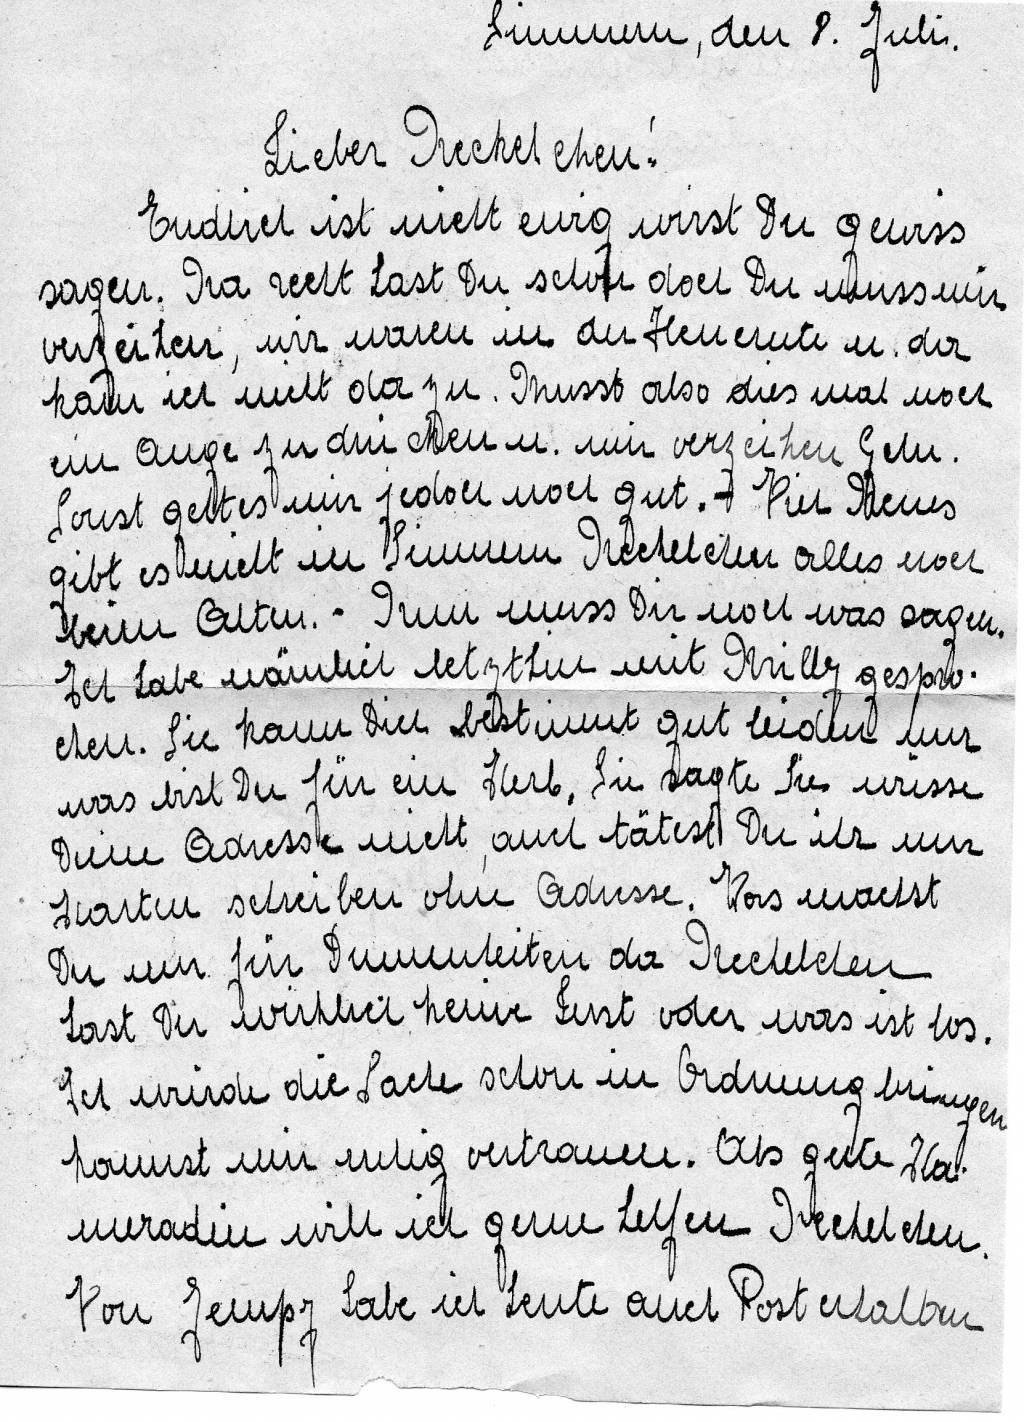 Simmern, den 8. Juli.
Lieber Neckelchen!
Endlich ist nicht ewig wirst Du gewiss
sagen. Na recht hast Du schon doch Du muss mir
verzeihen, wir waren in der Heuernte u. da
kam ich nicht dazu. Musst also dies mal noch
ein Auge zu drücken u. mir verzeihen Gelu.
Sonst geht es mir jedoch noch gut. - Viel Neues
gibt es nicht in Simmern Neckelchen alles noch
beim Alten. - Nun muss Dir noch was sagen.
Ich habe nämlich letzthin mit Milly gespro-
chen. Sie kann Dich bestimmt gut leiden nur
was bist Du für ein Herb. Sie sagte Sie wüsse
Deine Adresse nicht, auch tätest Du ihr nur
Karten schreiben ohne Adresse. Was machst
Du nur für Dummheiten da Neckelchen
hast Du wirklich keine Lust oder was ist los.
Ich würde die Sache schon in Ordnung bringen
kannst mir ruhig vertrauen. Als gute Ka-
meradin will ich gerne helfen Neckelchen.
Von Jempy habe ich heute auch Post erhalten